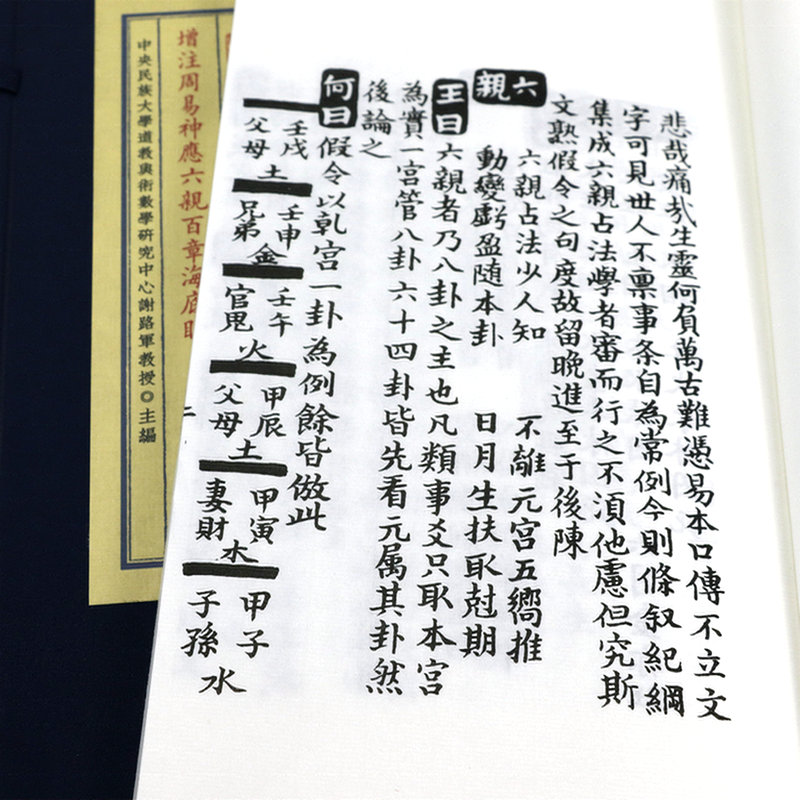 悲哉痛㢤生靈何負萬古難憑易本口傳不立文
字可見世人不禀事条自為常例今則條叙紀綱
集成六親占法學者審而行之不湏他慮但究斯
文熟假令之句度故留晚進至于後陳
六親
六親占法少人知 不離元宫五嚮推
動變虧盈随本卦 日月生扶取尅期
王曰 六親者乃八卦之主也凡類事爻只取本宫
為實一宫管八卦六十四卦皆先看元属其卦然
後論之
何曰 假令以乹宫一卦為例餘皆倣此
壬戌 父母 土
壬申 兄弟 金
壬午 官鬼 火
甲辰 父母 土
甲寅 妻財 木
甲子 子孫 水
二
增注周易神應六親百章海底
中央民族大學道教與術數學研究中心謝路軍教授◎主編